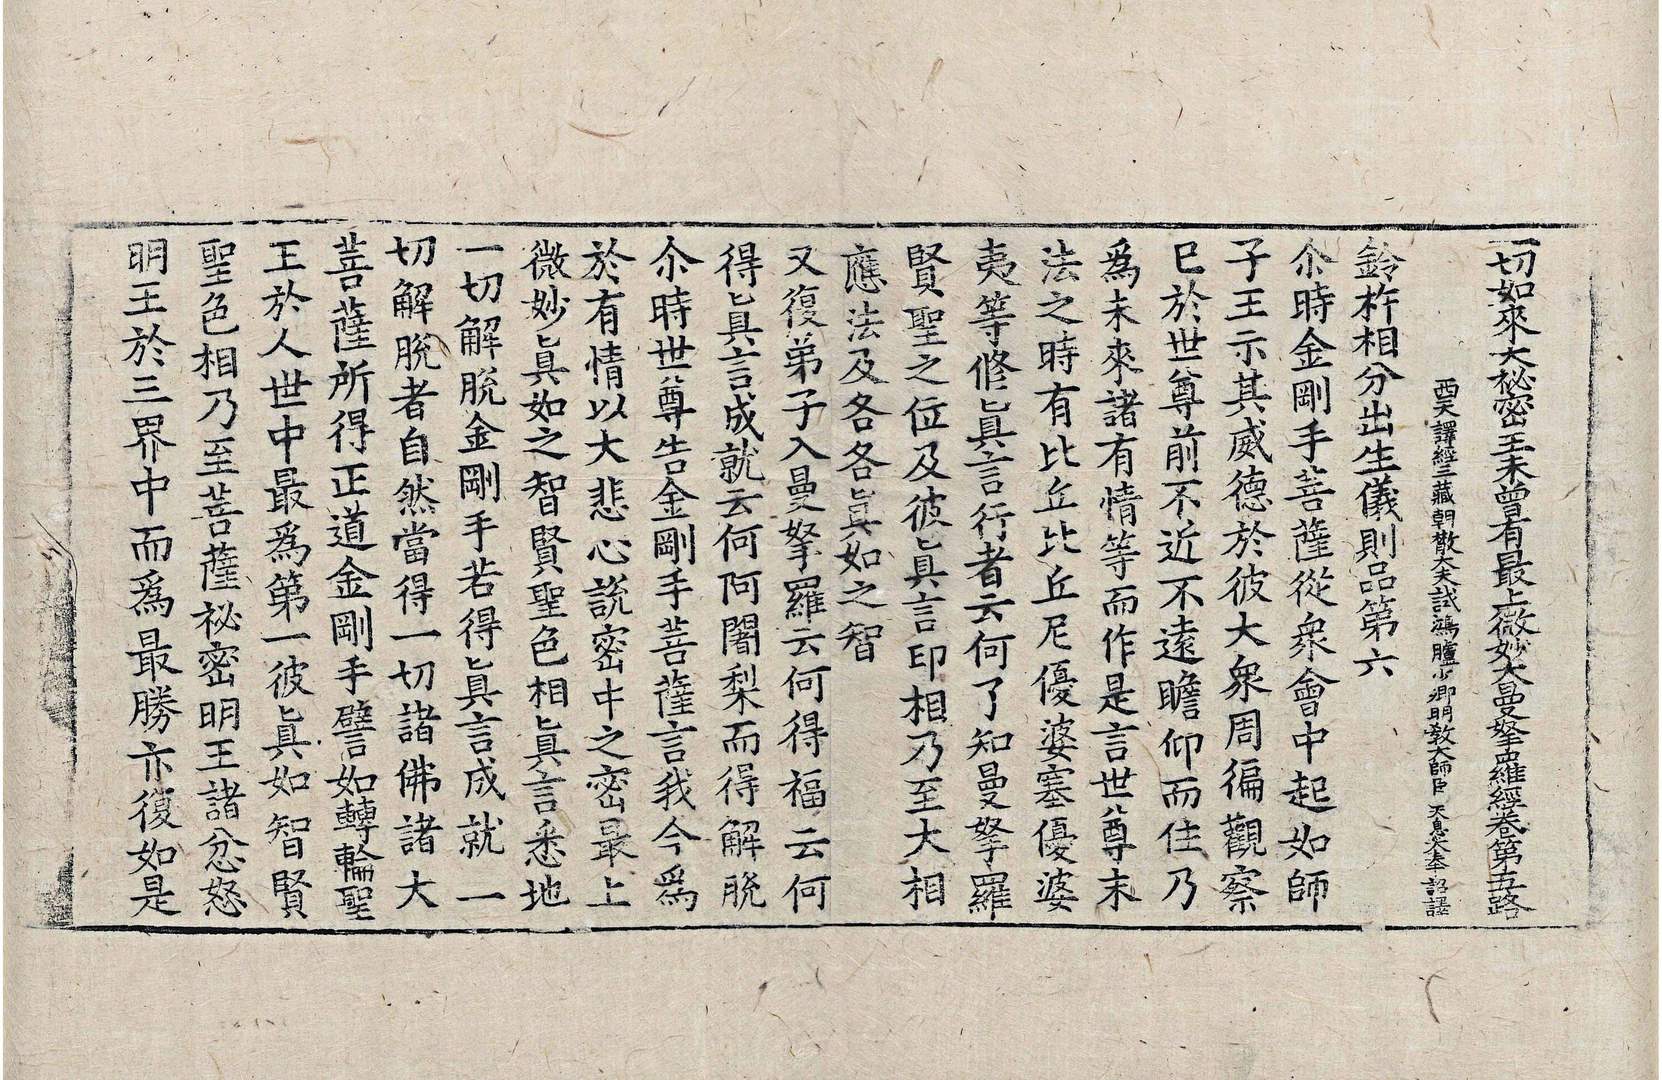 一切如來大秘密王未曾有最上微妙大曼拏羅經卷第五路
西天譯經三藏朝散大夫試鴻臚少卿明教大師臣 天息災奉 詔譯
鈴杵相分出生儀則品第六
尒時金剛手菩薩從衆會中起如師
子王示其威德於彼大衆周徧觀察
已於世尊前不近不遠瞻仰而住乃
爲未來諸有情等而作是言世尊末
法之時有比丘比丘尼優婆塞優婆
夷等修眞言行者云何了知曼拏羅
賢聖之位及彼眞言印相乃至大相
應法及各各眞如之智
又復弟子入曼拏羅云何得福云何
得眞言成就云何阿闍梨而得解脫
尒時世尊告金剛手菩薩言我今爲
於有情以大悲心說密中之密最上
微妙眞如之智賢聖色相眞言悉地
一切解脫金剛手若得眞言成就一
切解脫者自然當得一切諸佛諸大
菩薩所得正道金剛手譬如轉輪聖
王於人世中最爲第一彼眞如智賢
聖色相乃至菩薩祕密明王諸忿怒
明王於三界中而爲最勝亦復如是